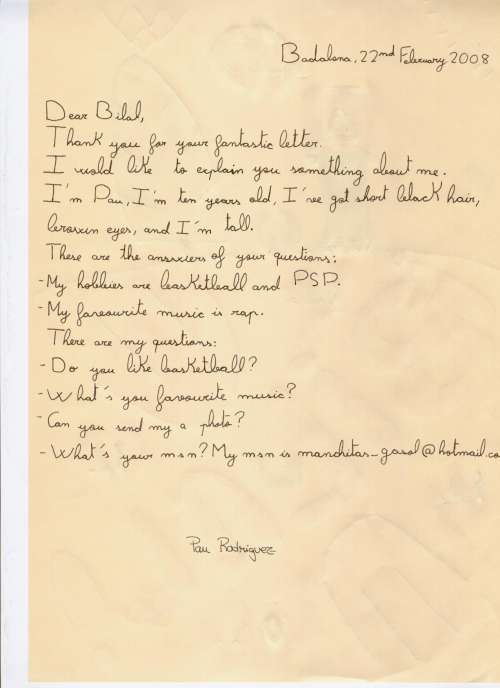 Badalona, 22nd February 2008
Dear Bilal,
Thank you for your fantastic letter.
I would like to explain you something about me.
I'm Pau, I'm ten years old, I've got short black hair,
brown eyes, and I'm tall.
These are the answers of your questions:
-My hobbies are basketball and PSP.
-My favourite music is rap.
There are my questions:
-Do you like basketball?
-What's you favourite music?
-Can you send my a photo?
-What's your msn? My msn is manchitas_gasol@hotmail.co
Pau Rodriguez